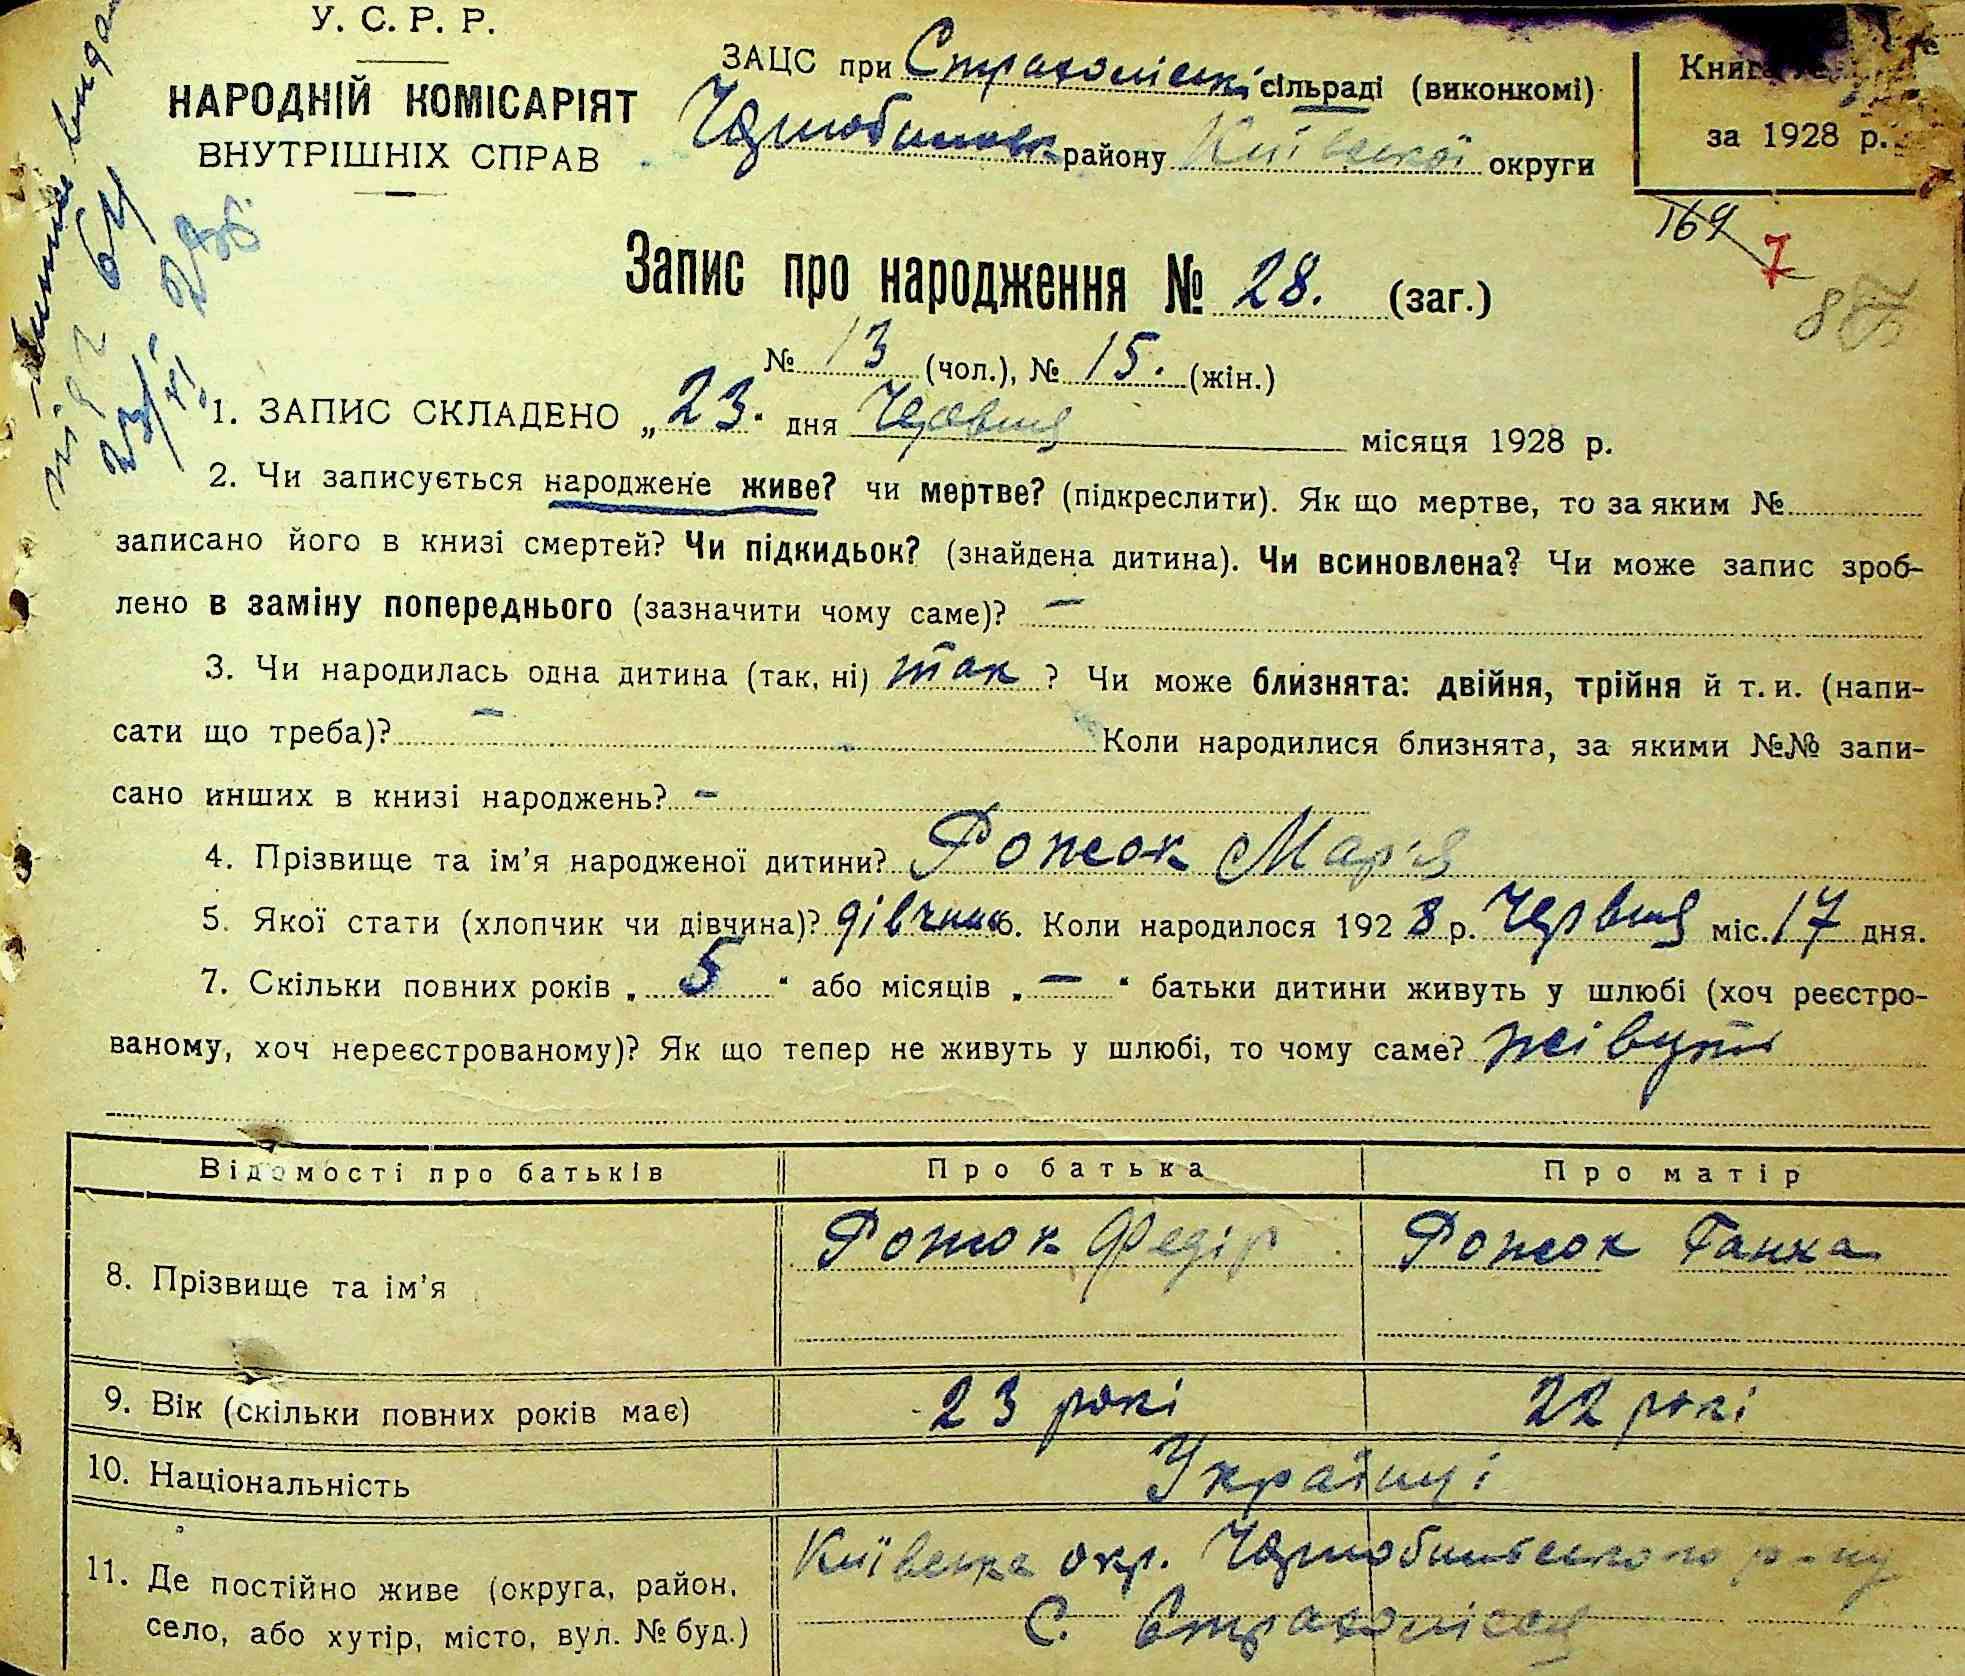 У. С. Р. Р.
НАРОДНІЙ КОМІСАРІЯТ
ВНУТРІШНІХ СПРАВ
ЗАЦС при Страхоліські сільраді (виконкомі)
Чорнобильськ району Київської округи
Книга
за 1928 р.
169
7
Запис про народження № 28. (заг.)
№ 13 (чол.), № 15. (жін.)
1. ЗАПИС СКЛАДЕНО „ 23. дня Червця місяця 1928 р.
2. Чи записується народжене живе? чи мертве? (підкреслити). Як що мертве, то за яким №
записано його в книзі смертей? Чи підкидьок? (знайдена дитина). Чи всиновлена? Чи може запис зроб-
лено в заміну попереднього (зазначити чому саме)? –
3. Чи народилась одна дитина (так, ні) так ? Чи може близнята: двійня, трійня й т. и. (напи-
сати що треба)? – Коли народилися близнята, за якими №№ запи-
сано инших в книзі народжень? –
4. Прізвище та ім'я народженої дитини? Рожок Мар'я
5. Якої стати (хлопчик чи дівчина)? дівчина 6. Коли народилося 1928 р. Червця міс. 17 дня.
7. Скільки повних років „ 5 “ або місяців „ – “ батьки дитини живуть у шлюбі (хоч реєстро-
ваному, хоч нереєстрованому)? Як що тепер не живуть у шлюбі, то чому саме? жівуть
Відомості про батьків Про батька Про матір
8. Прізвище та ім'я Рожок Федір Рожок Ганна
9. Вік (скільки повних років має) 23 рокі 22 рокі
10. Національність Українці
11. Де постійно живе (округа, район, Київська окр. Чорнобильського р-ну
село, або хутір, місто, вул. № буд.) С. Страхолісся